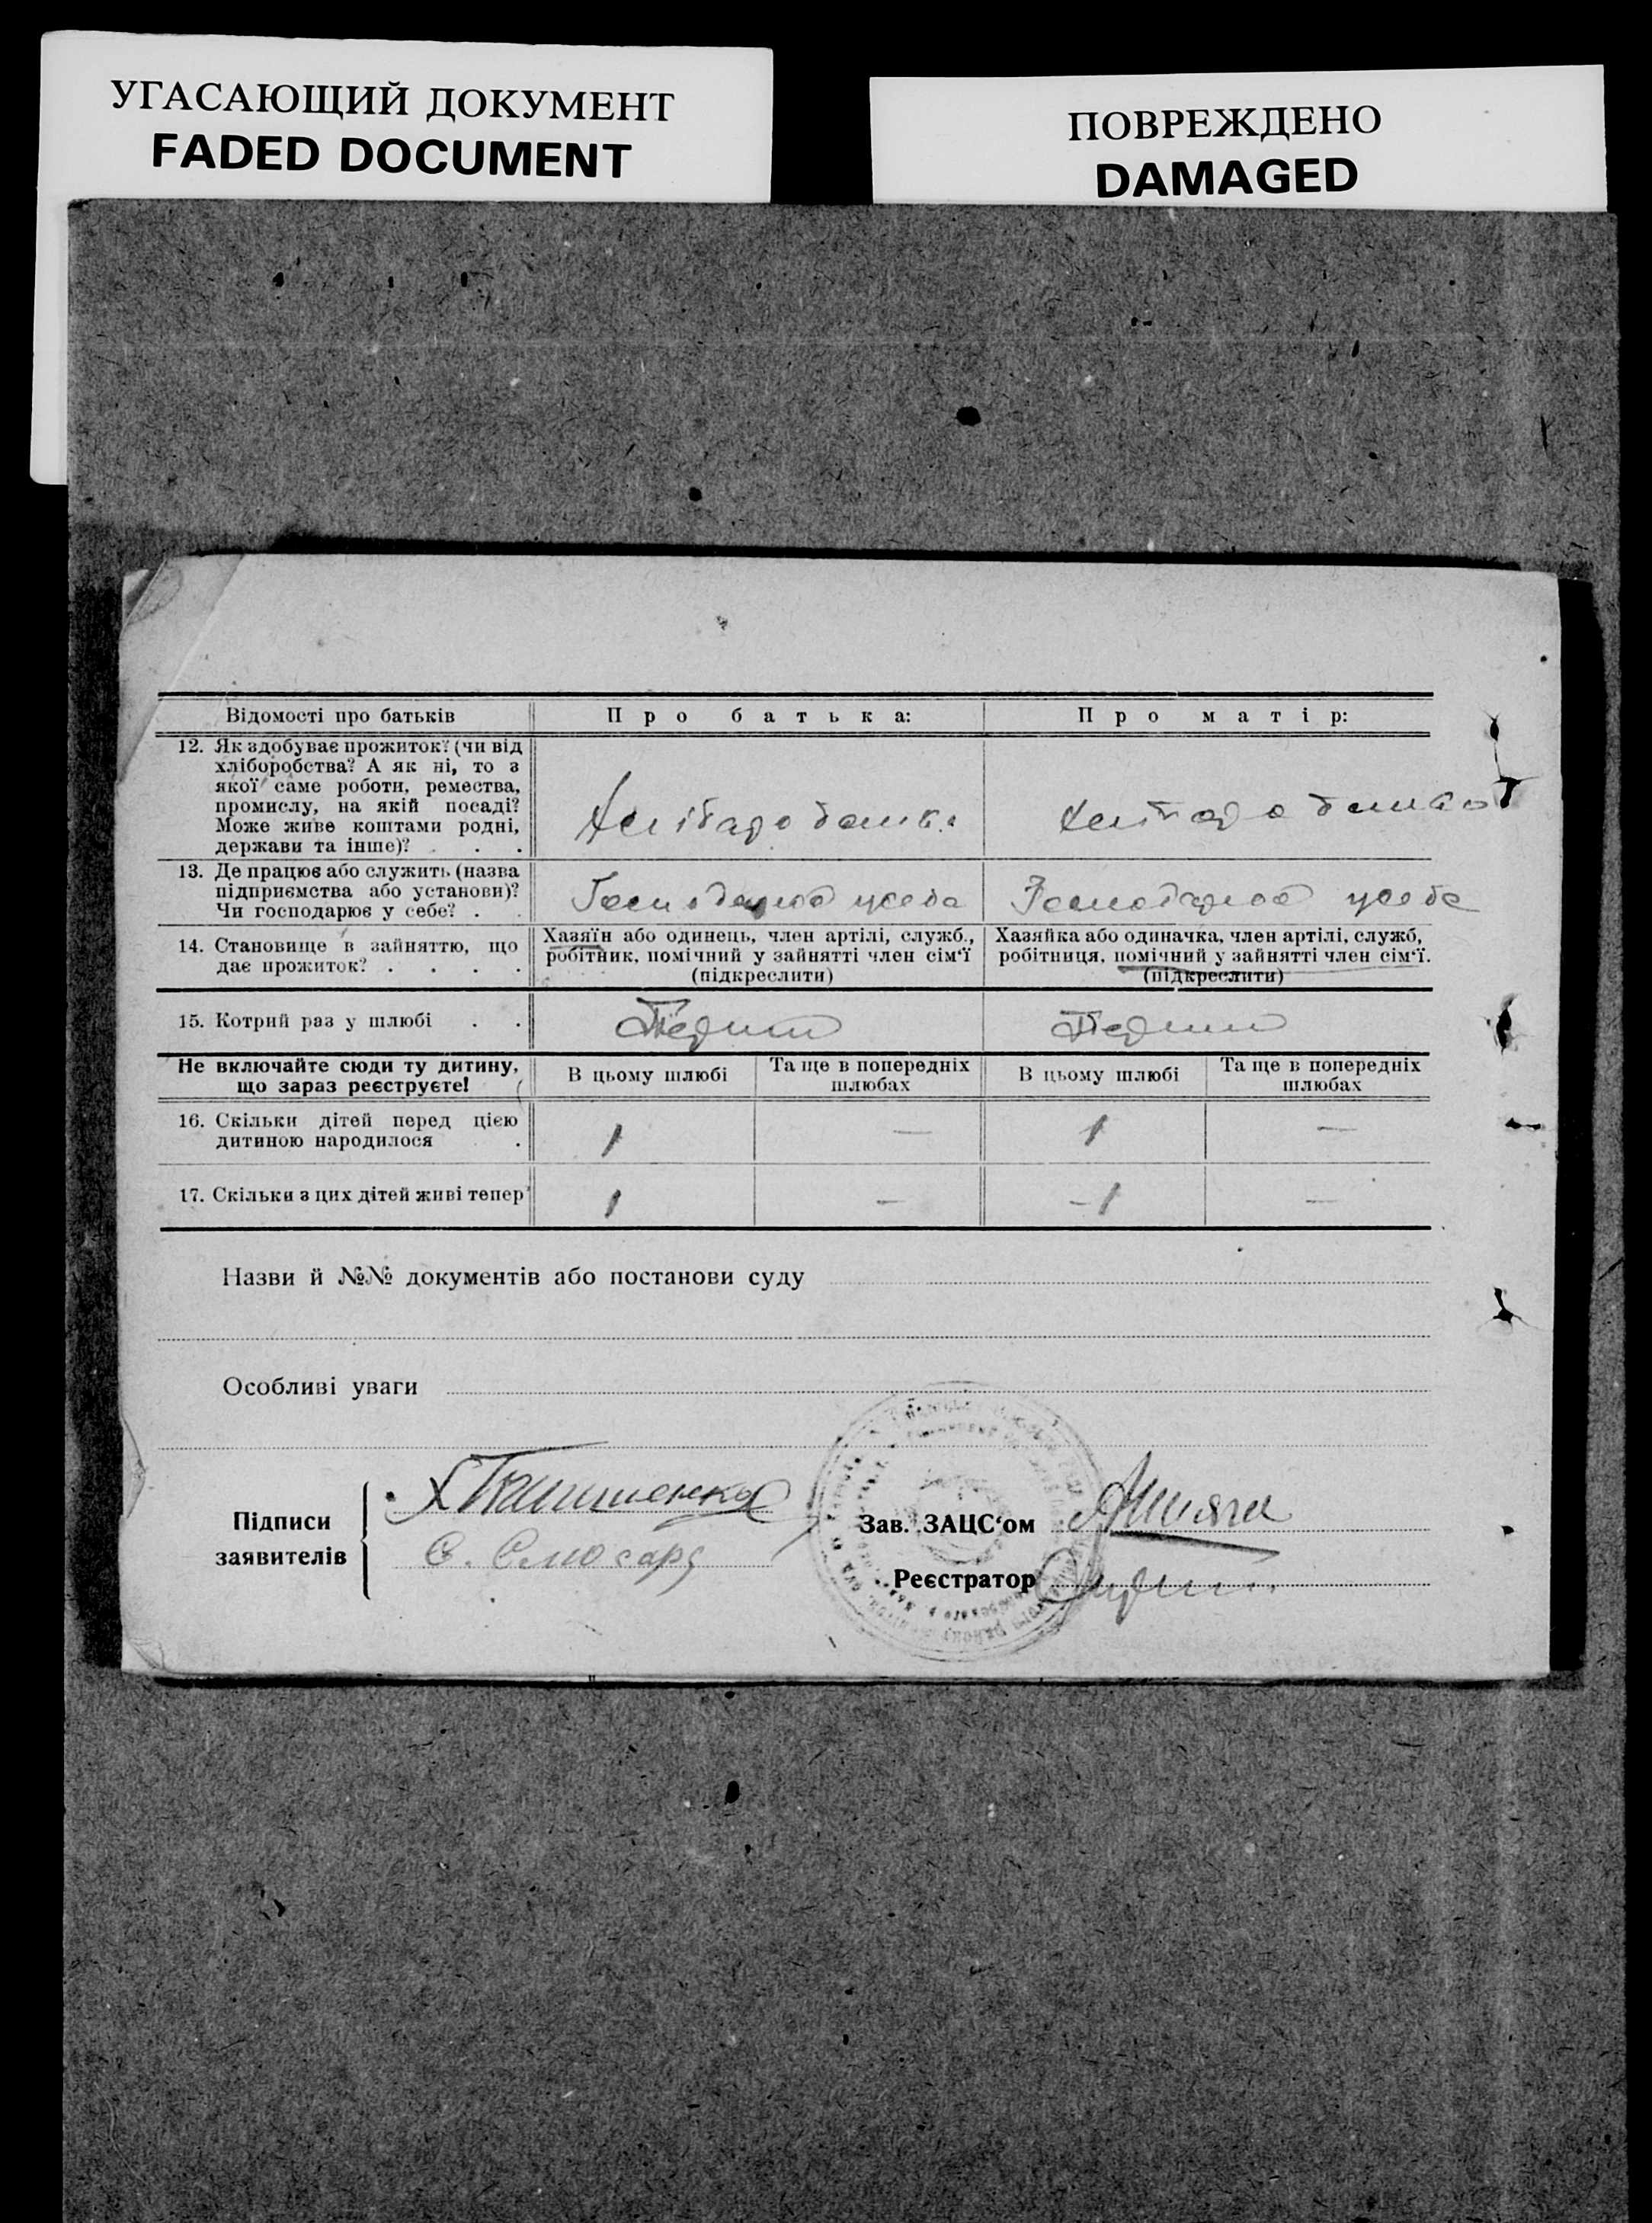 УГАСАЮЩИЙ ДОКУМЕНТ
FADED DOCUMENT
ПОВРЕЖДЕНО
DAMAGED
Відомості про батьків
Про батька:
Про матір:
12. Як здобуває прожиток? (чи від
хліборобства? А як ні, то з
якої саме роботи, ремества,
промислу, на якій посаді?
Може живе коштами родні,
держави та інше)? . . .
13. Де працює або служить (назва
підприємства або установи)?
Чи господарює у себе? . .
Господарює у себе
Господарює у себе
14. Становище в зайняттю, що
дає прожиток? . . . .
Хазяїн або одинець, член артілі, служб.,
робітник, помічний у зайнятті член сім'ї
(підкреслити)
Хазяйка або одиначка, член артілі, служб,
робітниця, помічний у зайнятті член сім'ї.
(підкреслити)
15. Котрий раз у шлюбі . .
Не включайте сюди ту дитину,
що зараз реєструєте!
В цьому шлюбі
Та ще в попередніх
шлюбах
В цьому шлюбі
Та ще в попередніх
шлюбах
16. Скільки дітей перед цією
дитиною народилося .
1
—
1
—
17. Скільки з цих дітей живі тепер
1
—
-1
—
Назви й №№ документів або постанови суду
Особливі уваги
Підписи
заявителів
Зав. ЗАЦС'ом
Реєстратор